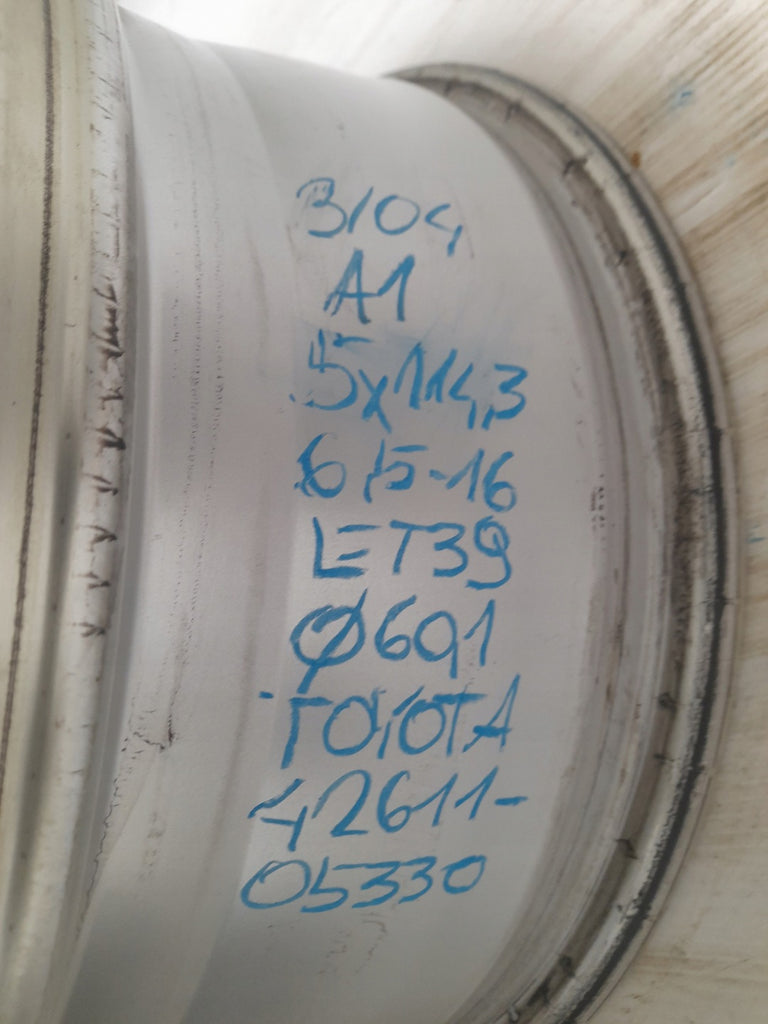 3104
A1
5x114,3
6,5-16
ET39
Ø60,1
TOYOTA
42611-
05330